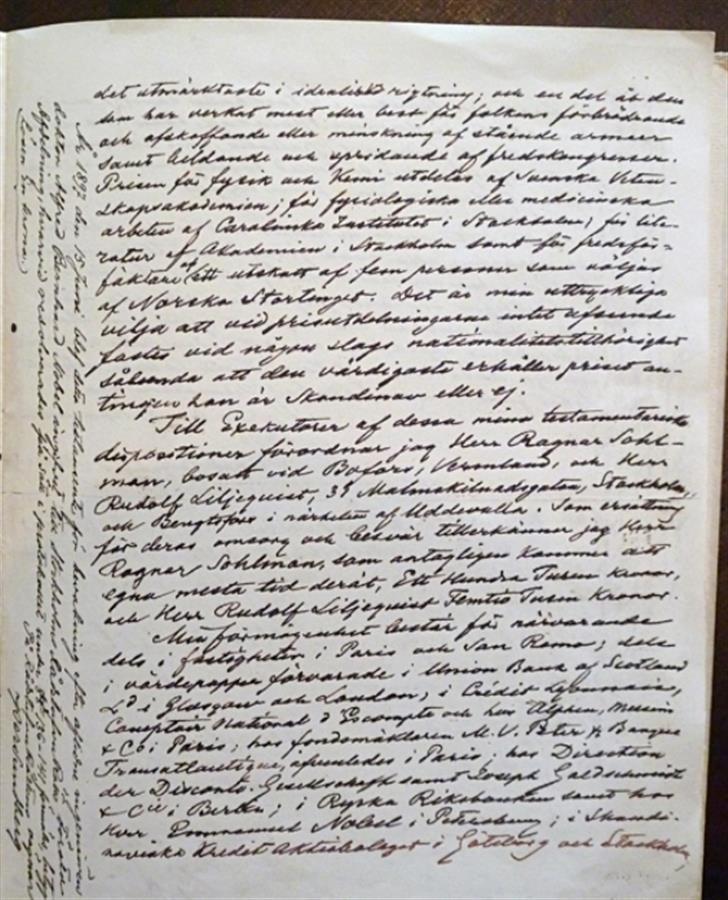 det utmärktaste i idealisk rigtning; och en del åt den
som har verkat mest eller best för folkens förbrödrande
och afskaffande eller minskning af stående armeer
samt bildande och spridande af fredskongresser.
Prisen för fysik och kemi utdelas af Svenska Veten-
skapsakademien; för fysiologiska eller medicinska
arbeten af Carolinska Institutet i Stockholm; för lite-
ratur af Akademien i Stockholm samt för fredsför-
fäktare af ett utskott af fem personer som väljas
af Norska Stortinget. Det är min uttryckliga
vilja att vid prisutdelningarne intet afseende
fästes vid någon slags nationalitetstillhörighet
sålunda att den värdigaste erhåller priset an-
tingen han är Skandinav eller ej.
Till Exekutorer af dessa mina testamentariska
dispositioner förordnar jag Herr Ragnar Sohl-
man, bosatt vid Bofors, Vermland, och Herr
Rudolf Liljequist, 31 Malmskilnadsgatan, Stockholm,
och Bengtsfors i närheten af Uddevalla. Som ersättning
för deras omsorg och besvär tillerkänner jag Herr
Ragnar Sohlman, som antagligen kommer att
egna mesta tid deråt, Ett Hundra Tusen Kronor,
och Herr Rudolf Liljequist Femtio Tusen Kronor.
Min förmögenhet består för närvarande
dels i fastigheter i Paris och San Remo; dels
i värdepapper förvarade i Union Bank of Scotland
Ld i Glasgow och London; i Crédit Lyonnais,
Comptoir National d'Escompte och hos Alphen, Messin
& Co i Paris; hos fondsmäklaren M. V. Peter & Banque
Transatlantique, afvenledes i Paris; hos Direction
der Disconto Gesellschaft samt Joseph Goldschmidt
& Cie i Berlin; i Ryska Riksbanken samt hos
Herr Emmanuel Nobel i Petersburg; i Skandi-
naviska Kredit Aktiebolaget i Göteborg och Stockholm,
1897 den 15 Juni blef detta testamente, efter aflidne ingeniören
doktor Alfred Bernhard Nobel ingifvet till Stockholms Rådstufvu Rätts första
Afdelning, hvarvid resolverades på sätt i protokollet under §
Lösen En krona.
På Rådstufvu Rättens vägnar